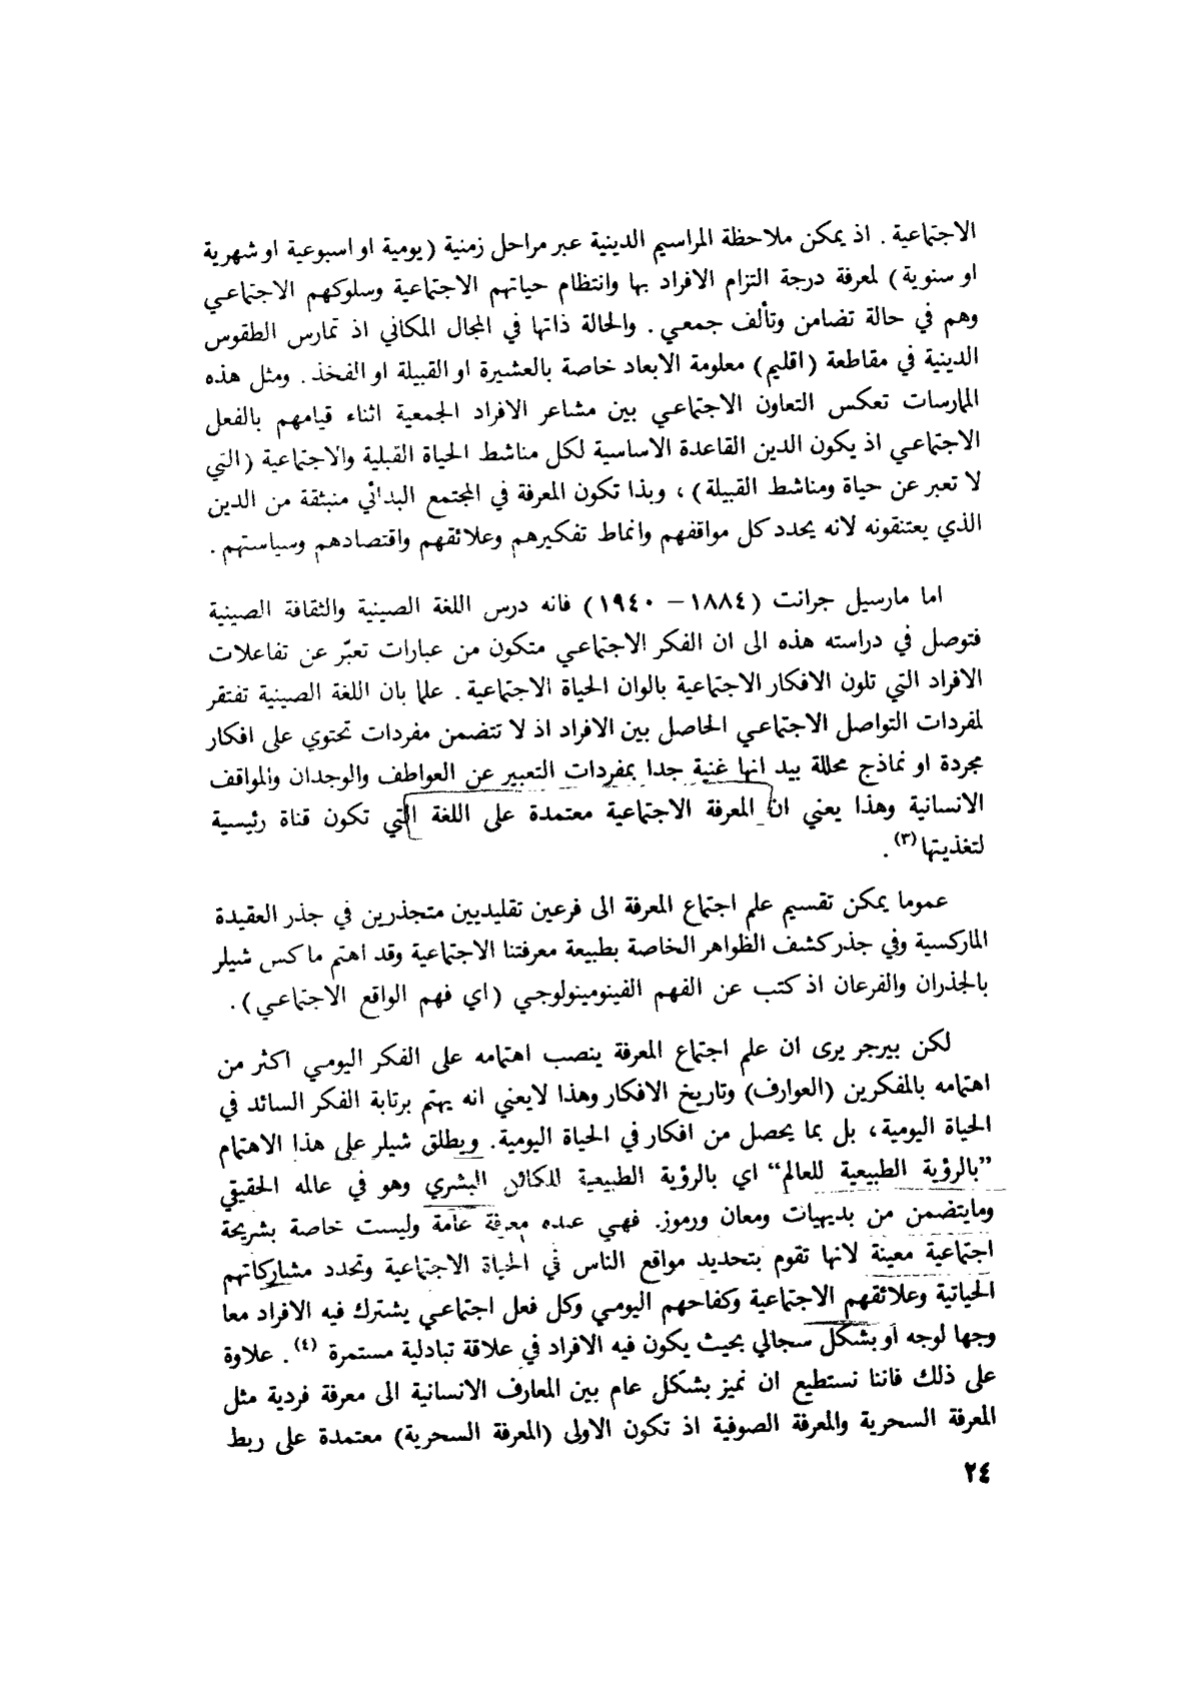 الاجتماعية . اذ يمكن ملاحظة المراسيم الدينية عبر مراحل زمنية (يومية او اسبوعية او شهرية
او سنوية) لمعرفة درجة التزام الافراد بها وانتظام حياتهم الاجتماعية وسلوكهم الاجتماعي
وهم في حالة تضامن وتألف جمعي . والحالة ذاتها في المجال المكاني اذ تمارس الطقوس
الدينية في مقاطعة (اقليم) معلومة الابعاد خاصة بالعشيرة او القبيلة او الفخذ . ومثل هذه
الممارسات تعكس التعاون الاجتماعي بين مشاعر الافراد الجمعية اثناء قيامهم بالفعل
الاجتماعي اذ يكون الدين القاعدة الاساسية لكل مناشط الحياة القبلية والاجتماعية (التي
لا تعبر عن حياة ومناشط القبيلة) ، وبذا تكون المعرفة في المجتمع البدائي منبثقة من الدين
الذي يعتنقونه لانه يحدد كل مواقفهم وانماط تفكيرهم وعلائقهم واقتصادهم وسياستهم .
اما مارسيل جرانت (١٨٨٤ – ١٩٤٠) فانه درس اللغة الصينية والثقافة الصينية
فتوصل في دراسته هذه الى ان الفكر الاجتماعي متكون من عبارات تعبّر عن تفاعلات
الافراد التي تلون الافكار الاجتماعية بالوان الحياة الاجتماعية . علما بان اللغة الصينية تفتقر
لمفردات التواصل الاجتماعي الحاصل بين الافراد اذ لا تتضمن مفردات تحتوي على افكار
مجردة او نماذج محللة بيد انها غنية جدا بمفردات التعبير عن العواطف والوجدان والمواقف
الانسانية وهذا يعني ان المعرفة الاجتماعية معتمدة على اللغة التي تكون قناة رئيسية
لتغذيتها (٣) .
عموما يمكن تقسيم علم اجتماع المعرفة الى فرعين تقليديين متجذرين في جذر العقيدة
الماركسية وفي جذر كشف الظواهر الخاصة بطبيعة معرفتنا الاجتماعية وقد اهتم ماكس شيلر
بالجذران والفرعان اذ كتب عن الفهم الفينومينولوجي (اي فهم الواقع الاجتماعي) .
لكن بيرجر يرى ان علم اجتماع المعرفة ينصب اهتمامه على الفكر اليومي اكثر من
اهتمامه بالمفكرين (العوارف) وتاريخ الافكار وهذا لايعني انه يهتم برتابة الفكر السائد في
الحياة اليومية، بل بما يحصل من افكار في الحياة اليومية. ويطلق شيلر على هذا الاهتمام
”بالرؤية الطبيعية للعالم“ اي بالرؤية الطبيعية للكائن البشري وهو في عالمه الحقيقي
ومايتضمن من بديهيات ومعان ورموز. فهي عنده معرفة عامة وليست خاصة بشريحة
اجتماعية معينة لانها تقوم بتحديد مواقع الناس في الحياة الاجتماعية وتحدد مشاركاتهم
الحياتية وعلائقهم الاجتماعية وكفاحهم اليومي وكل فعل اجتماعي يشترك فيه الافراد معا
وجها لوجه او بشكل سجالي بحيث يكون فيه الافراد في علاقة تبادلية مستمرة (٤) . علاوة
على ذلك فاننا نستطيع ان نميز بشكل عام بين المعارف الانسانية الى معرفة فردية مثل
المعرفة السحرية والمعرفة الصوفية اذ تكون الاولى (المعرفة السحرية) معتمدة على ربط
٢٤